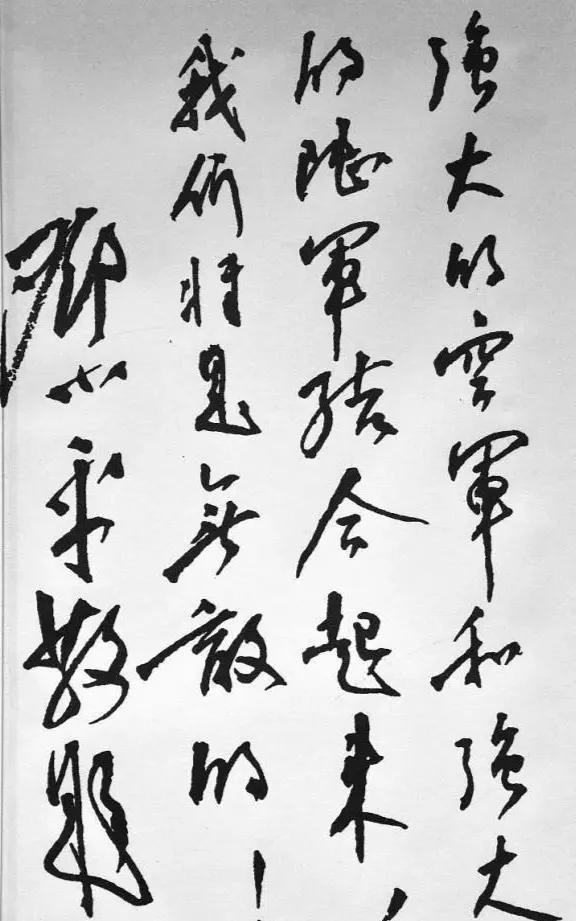 強大的空軍和強大
的陸軍結合起来，
我们将是無敵的！
鄧小平敬題